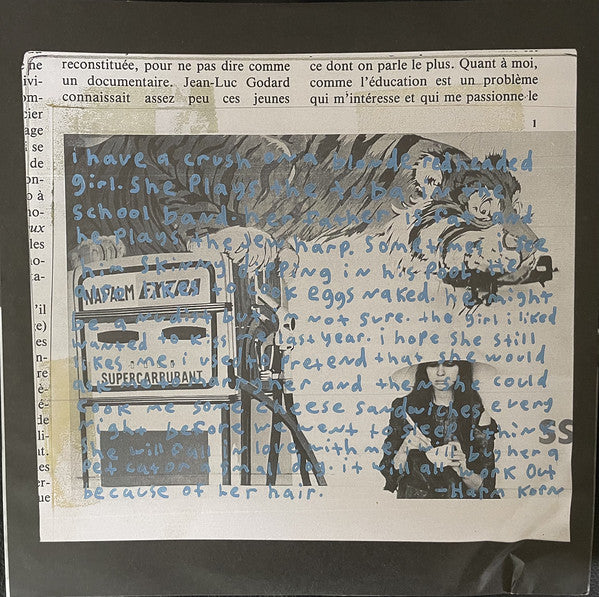 reconstituée, pour ne pas dire comme
un documentaire. Jean-Luc Godard
connaissait assez peu ces jeunes
ce dont on parle le plus. Quant à moi,
comme l'éducation est un problème
qui m'intéresse et qui me passionne le
1
i have a crush on a blonde redheaded
girl. She Plays the tuba in the
school band. her father is fun and
he plays the jew harp. Sometimes i see
him skinny dipping in his pool. he
also likes to cook eggs naked. he might
be a nudist but im not sure. the girl i liked
wanted to kiss me last year. i hope she still
likes me. i used to pretend that she would
marry her and then she could
cook me some cheese sandwiches every
night before we went to sleep. i think
She will fall in love with me. i'll buy her a
pet cat or a small dog. it will all work out
because of her hair. — Harm Korn
NAPALM EXTRA
SUPERCARBURANT
SS